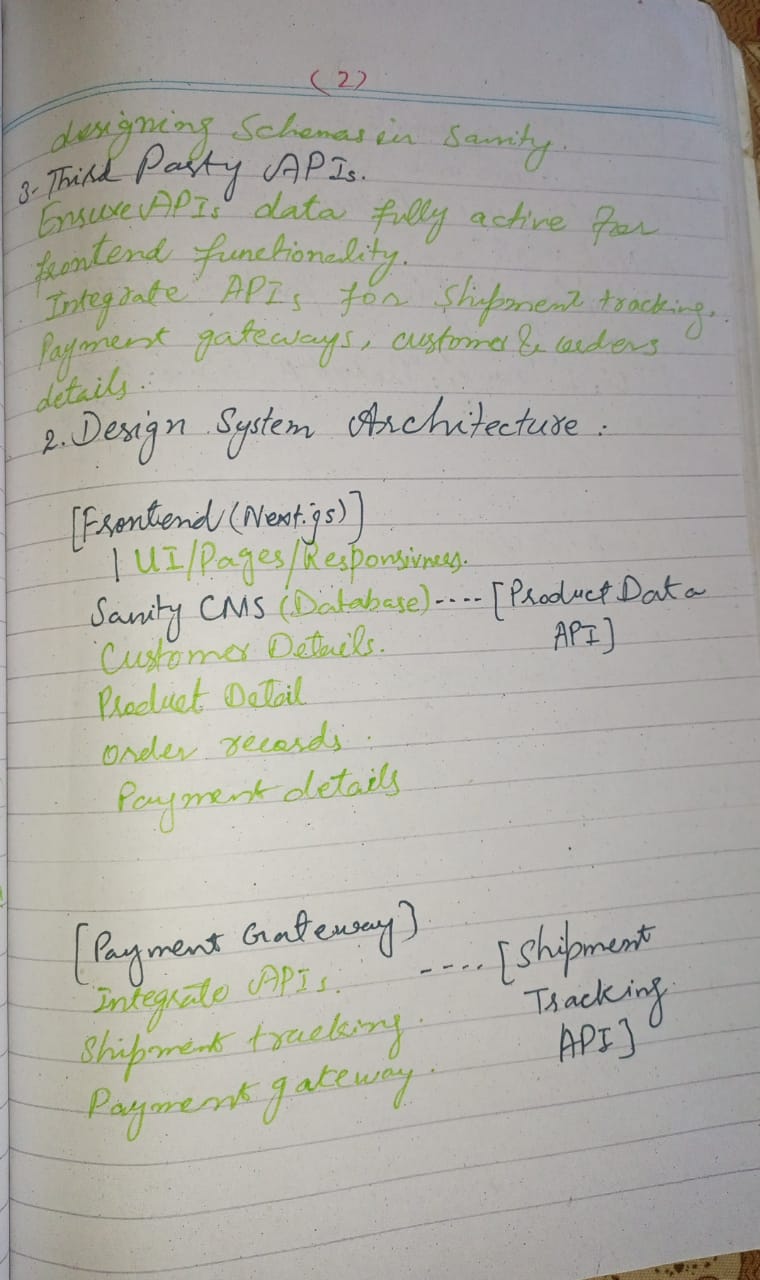 (2)
designing Schemas in Sanity.
3- Third Party APIs.
Ensure APIs data fully active for
frontend functionality.
Integrate APIs for shipment tracking,
Payment gateways, customer & orders
details.
2. Design System Architecture :
[Frontend (Next.js)]
| UI/Pages/Responsivness.
Sanity CMS (Database)---- [Product Data
API]
Customer Details.
Product Detail
order records.
Payment details
[Payment Gateway]
---- [Shipment
Integrate APIs.
Tracking
Shipment tracking.
API]
Payment gateway.